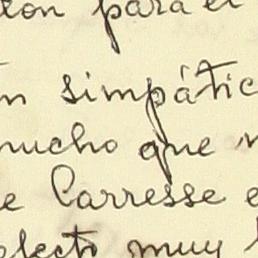 con para el
n simpátic
mucho que n
e Carresse e
electo muy